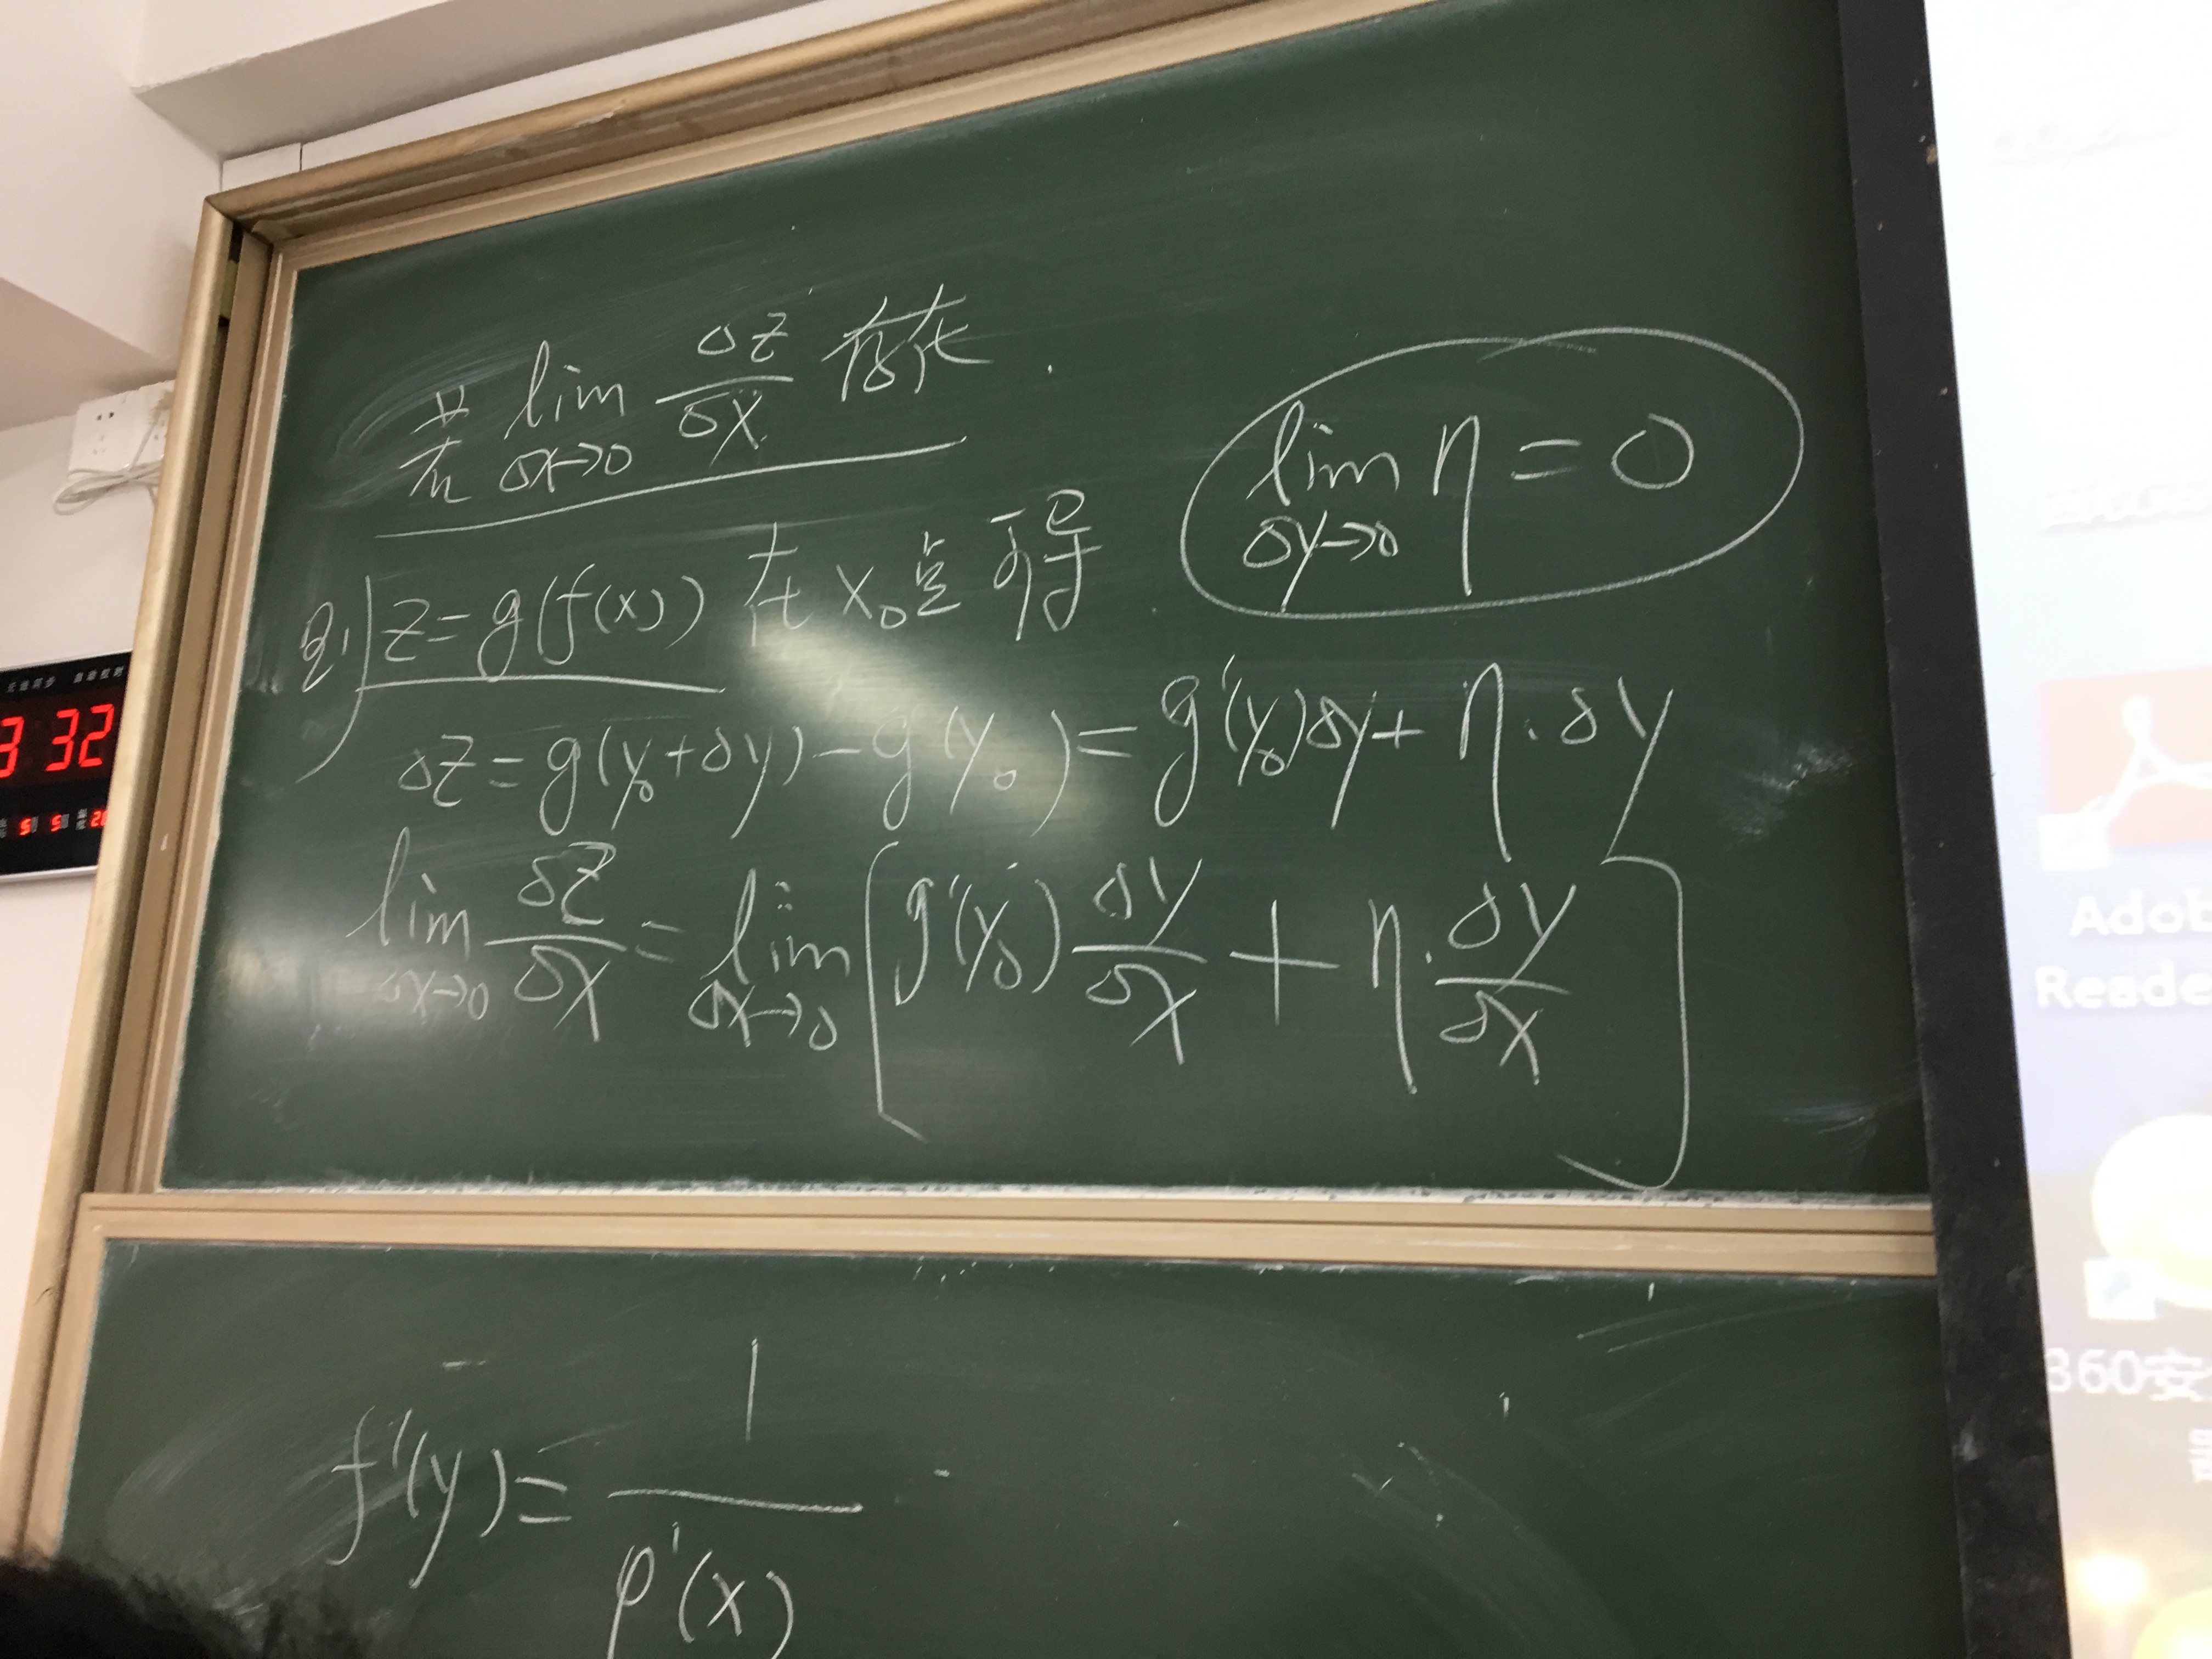 若 lim Δx→0 Δz/Δx 存在.
lim Δy→0 η = 0
则 z = g(f(x)) 在 x₀ 点 可导
Δz = g(y₀+Δy) - g(y₀) = g'(y₀)Δy + η·Δy
lim Δx→0 Δz/Δx = lim Δx→0 [g'(y₀) Δy/Δx + η· Δy/Δx]
f'(y) = 1/φ'(x)
3 32
Adob
Reade
360安